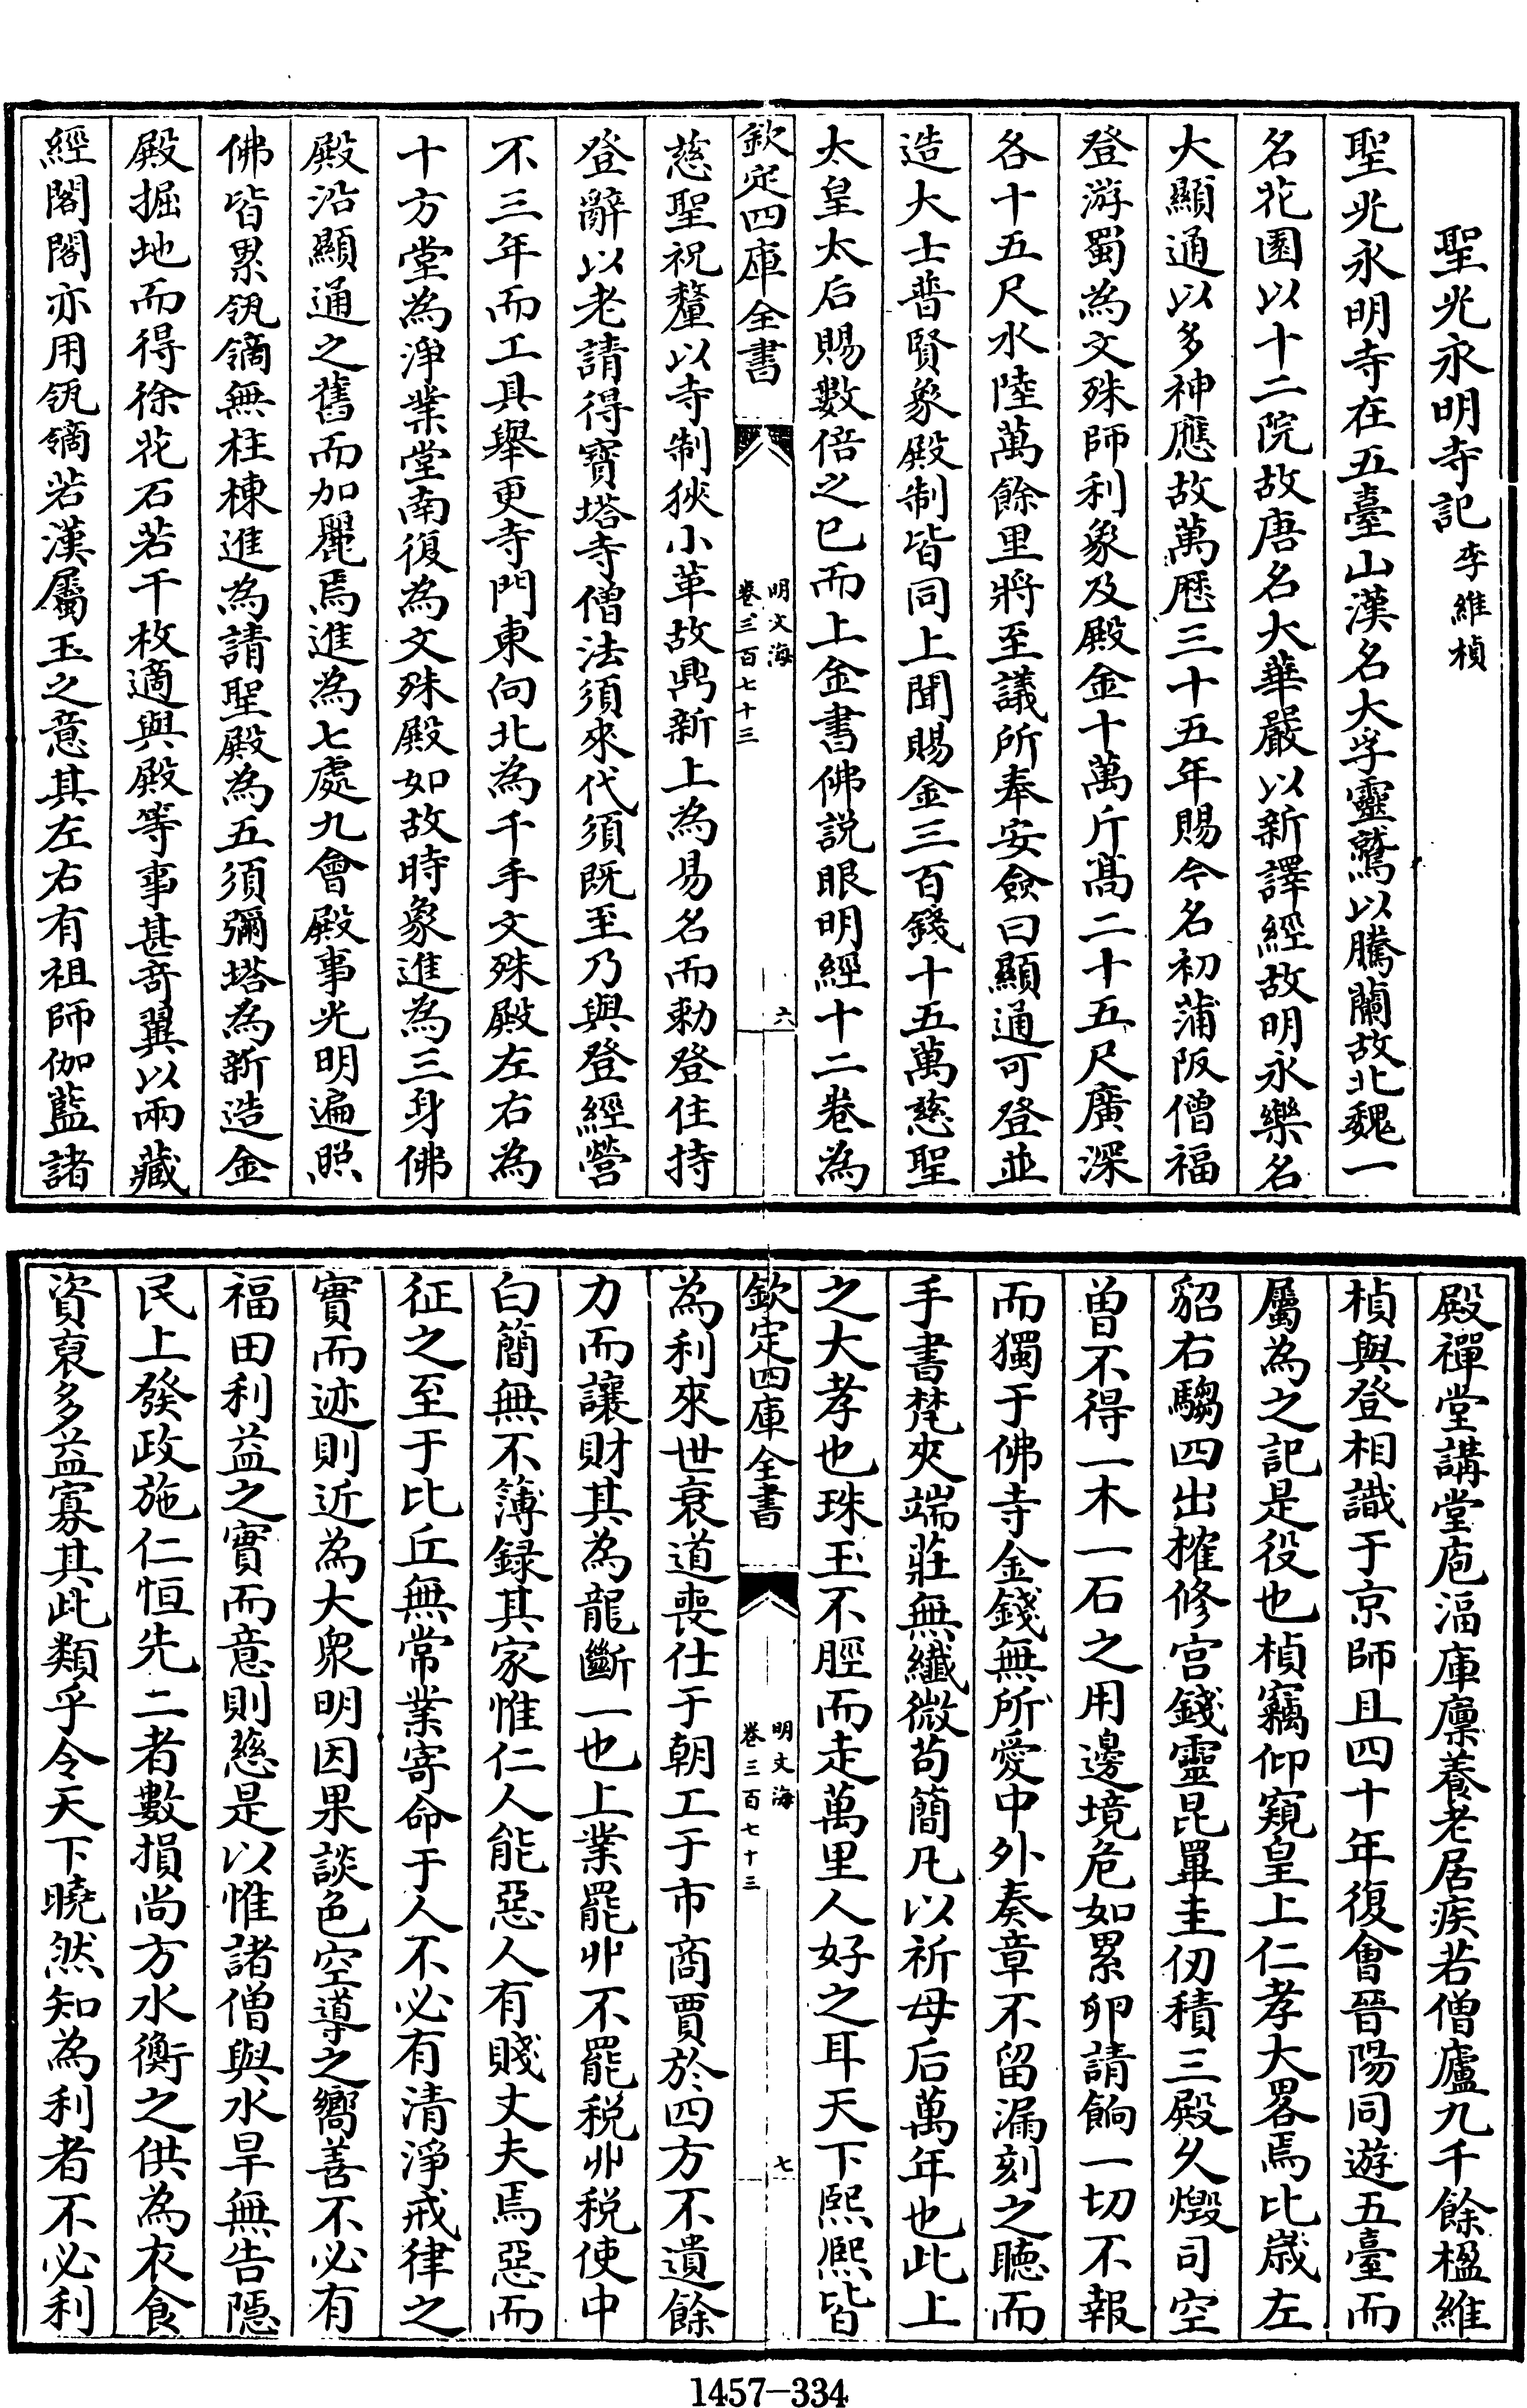 聖光永明寺記李維楨
聖光永明寺在五臺山漢名大孚靈鷲以騰蘭故北魏一
名花園以十二院故唐名大華嚴以新譯經故明永樂名
大顯通以多神應故萬厯三十五年賜今名初蒲阪僧福
登游蜀為文殊師利象及殿金十萬斤髙二十五尺廣深
各十五尺水陸萬餘里將至議所奉安僉曰顯通可登並
造大士普賢象殿制皆同上聞賜金三百錢十五萬慈聖
太皇太后賜數倍之已而上金書佛説眼明經十二巻為
欽定四庫全書
明文海
巻三百七十三
六
慈聖祝釐以寺制狹小革故鼎新上為易名而勅登住持
登辭以老請得寳塔寺僧法須來代須既至乃與登經營
不三年而工具舉更寺門東向北為千手文殊殿左右為
十方堂為淨業堂南復為文殊殿如故時象進為三身佛
殿沿顯通之舊而加麗焉進為七處九會殿事光明遍照
佛皆累瓴甋無柱棟進為請聖殿為五須彌塔為新造金
殿掘地而得徐花石若干枚適與殿等事甚竒翼以兩藏
經閣閣亦用瓴甋若漢屬玉之意其左右有祖師伽藍諸
殿禪堂講堂庖湢庫廩養老居疾若僧廬九千餘楹維
楨與登相識于京師且四十年復會晉陽同遊五臺而
屬為之記是役也楨竊仰窺皇上仁孝大畧焉比嵗左
貂右騶四出榷修宫錢靈昆畢圭仞積三殿久燬司空
曽不得一木一石之用邊境危如累卵請餉一切不報
而獨于佛寺金錢無所愛中外奏章不留漏刻之聽而
手書梵夾端莊無纎微苟簡凡以祈母后萬年也此上
之大孝也珠玉不脛而走萬里人好之耳天下熙熙皆
欽定四庫全書
明文海
巻三百七十三
七
為利來世衰道喪仕于朝工于市商賈於四方不遺餘
力而讓財其為龍斷一也上業罷丱不罷税丱税使中
白簡無不簿録其家惟仁人能惡人有賤丈夫焉惡而
征之至于比丘無常業寄命于人不必有清淨戒律之
實而迹則近為大衆明因果談色空導之嚮善不必有
福田利益之實而意則慈是以惟諸僧與水旱無告隠
民上發政施仁恒先二者數損尚方水衡之供為衣食
資裒多益寡其此類乎令天下曉然知為利者不必利
1457-334